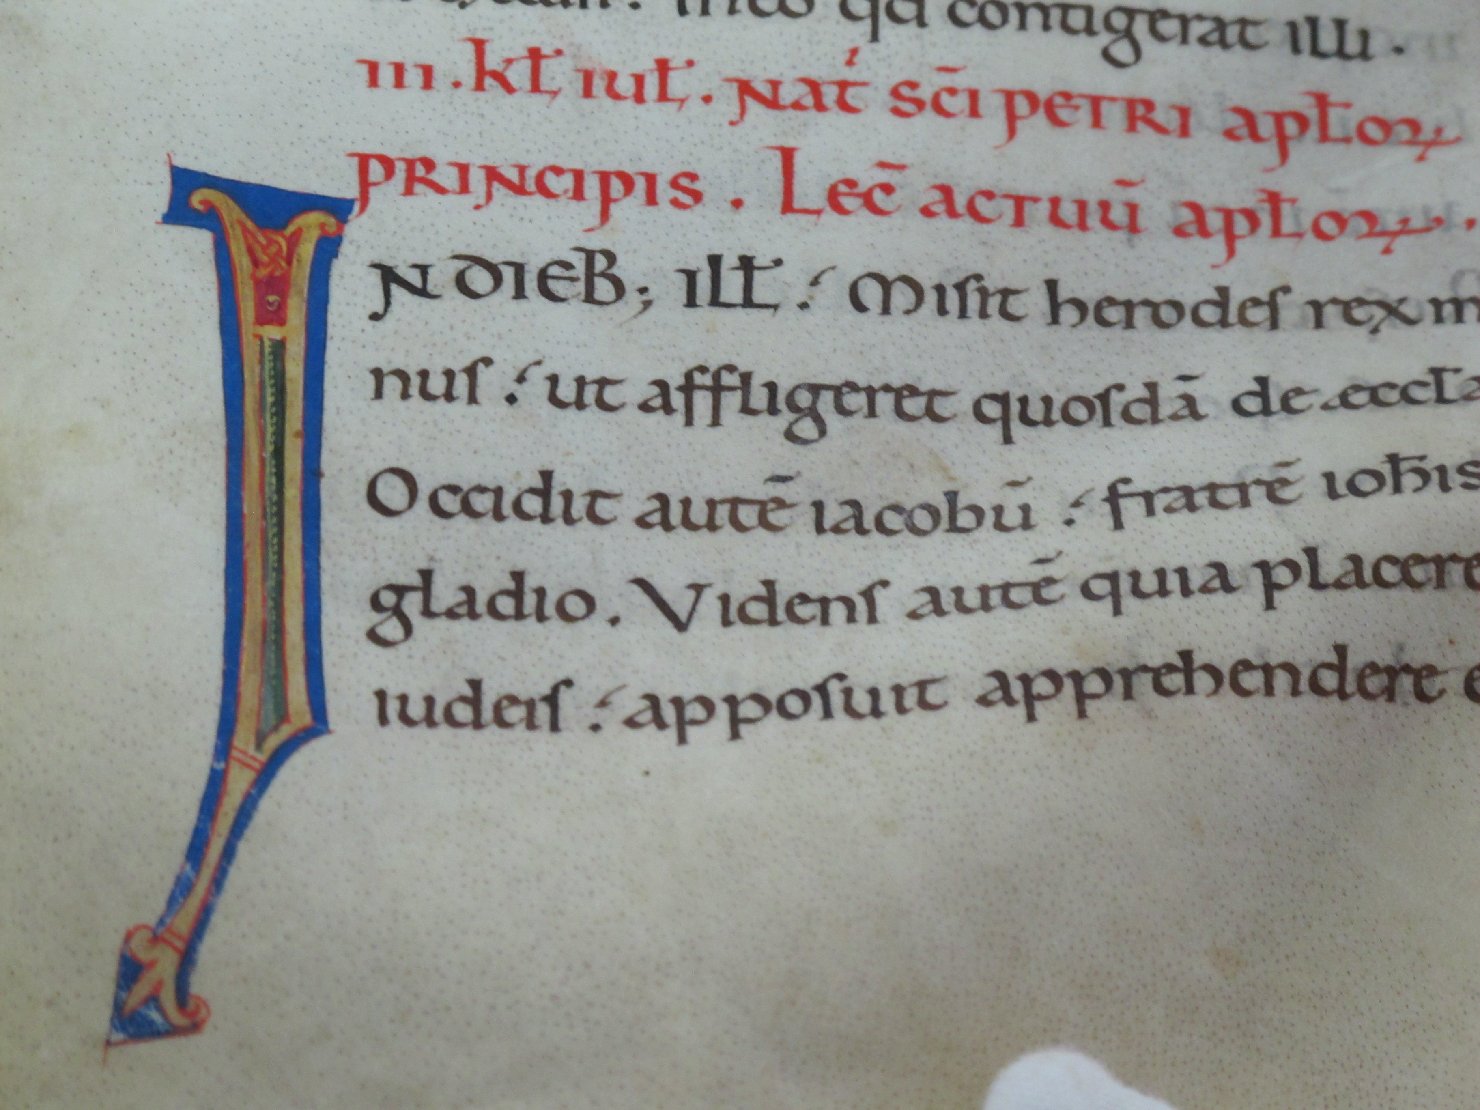 qd contigerat illi.
III.kł iuł. Nat sc̄i petri apłoꝝ
principis. Lec̄ actuū apłoꝝ.
IN dieb; illł: Misit herodes rex
nus: ut affligeret quosdā de æccła
Occidit autē iacobū: fratrē ioħis
gladio. Videns autē quia placere
iudeis: apposuit apprehendere